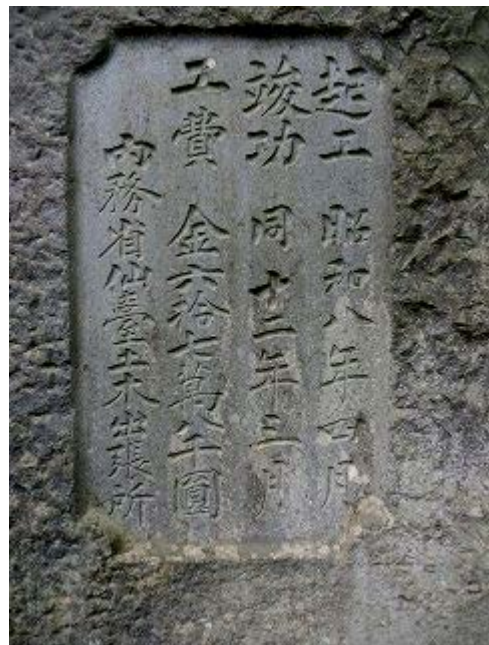 起工 昭和八年四月
竣功 同十二年三月
工費 金六拾七萬八千圓
内務省仙臺土木出張所